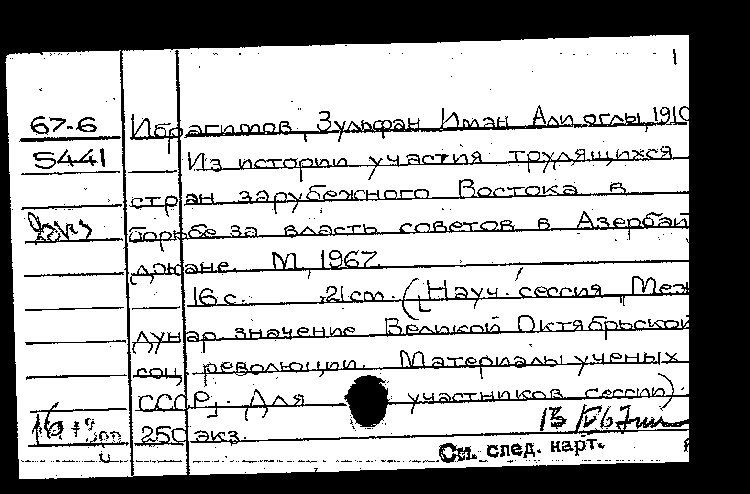 1
67-6 Ибрагимов, Зульфан Иман Али оглы, 1910
5441 Из истории участия трудящихся
стран зарубежного Востока в
борьбе за власть советов в Азербай
джане. М, 1967.
16 с. 21 cm. (Науч. сессия „Меж
дунар значение Великой Октябрьской
соц. революции. Материалы ученых
СССР]. Для участников сессии).
250 экз.
См. след. карт.